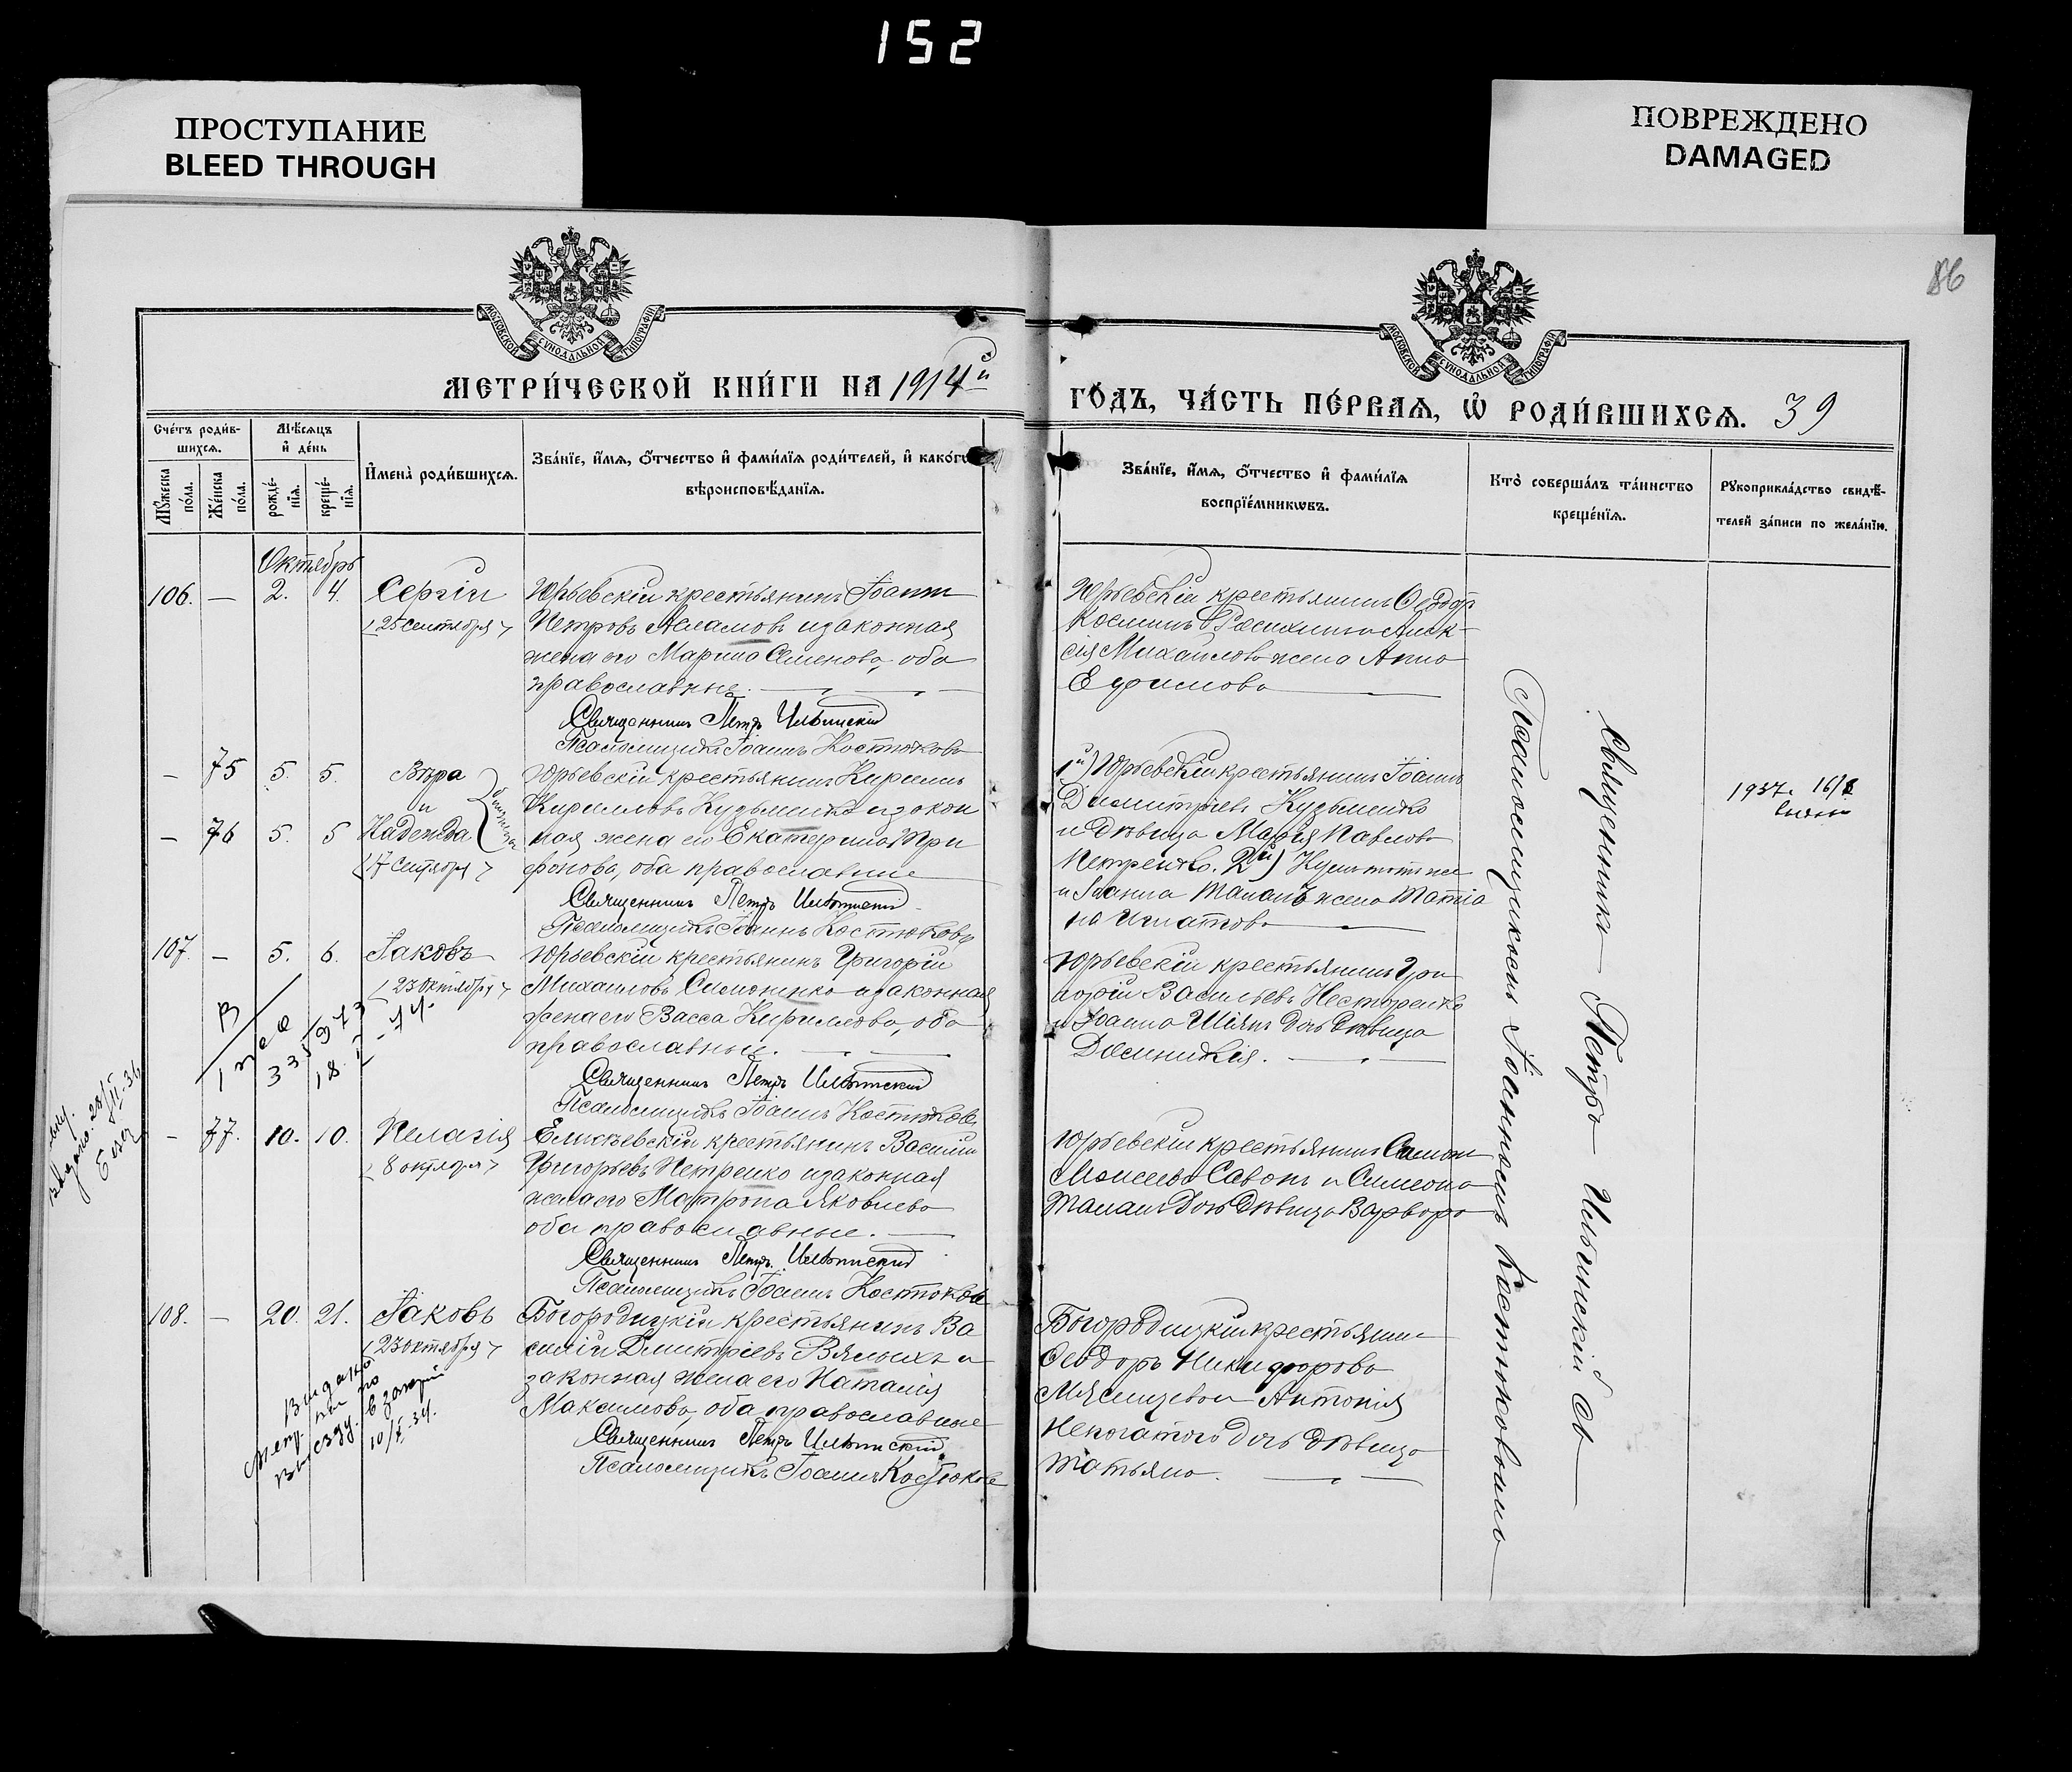 152
ПРОСТУПАНИЕ
BLEED THROUGH
ПОВРЕЖДЕНО
DAMAGED
86
МОСКОВСКОЙ СѴНОДАЛЬНОЙ ТИПОГРАФІИ
МОСКОВСКОЙ СѴНОДАЛЬНОЙ ТИПОГРАФІИ
МЕТРИ́ЧЕСКОЙ КНИ́ГИ НА 1914й
ГО́ДЪ, ЧА́СТЬ ПЕ́РВАѦ, Ѡ҆ РОДИ́ВШИХСѦ. 39
Сче́тъ роди́в-
шихсѧ.
Мꙋ́жеска
по́ла.
Же́нска
по́ла.
Мѣ́сѧцъ
и҆ де́нь
рожде́-
нїѧ.
креще́-
нїѧ.
И҆мена̀ роди́вшихсѧ.
Зва́нїе, и҆́мѧ, ѻ҆́тчество и҆ фами́лїѧ роди́телей, и҆ како́гѡ
вѣроисповѣ́данїѧ.
Зва́нїе, и҆́мѧ, ѻ҆́тчество и҆ фами́лїѧ
воспрїе́мникѡвъ.
Кто̀ соверша́лъ та́инство
креще́нїѧ.
Рꙋкоприкла́дство свидѣ́-
телей за́писи по жела́нїю.
Октябрь
106. — 2. 4. Сергій
(25 сентября)
Юрьевскій крестьянинъ Іоаннъ
Петровъ Асламовъ и законная
жена его Марина Семенова, оба
православные.
Священникъ Петръ Ильинскій
Псаломщикъ Іоаннъ Костюковъ
Юрьевскій крестьянинъ Ѳеодоръ
Косминъ и Алек-
сія Михайлова жена Анна
Ефимова
— 75 5. 5. Вѣра
и
— 76 5. 5 Надежда
близнецы
(17 сентября)
Юрьевскій крестьянинъ Кириллъ
Кирилловъ Кузьменко и закон
ная жена его Екатерина Три
фонова, оба православные
Священникъ Петръ Ильинскій
Псаломщикъ Іоаннъ Костюковъ
1й) Юрьевскій крестьянинъ Іоаннъ
Димитріевъ Кузьменко
и дѣвица Марія Павлова
Петренко. 2й)
и Іоанна жена Татіа
на Игнатова
1937. 16/
107. — 5. 6. Іаковъ
(23 октября)
Юрьевскій крестьянинъ Григорій
Михаиловъ Симоненко и законная
жена его Васса Кириллова, оба
православные.
Священникъ Петръ Ильинскій
Псаломщикъ Іоаннъ Костюковъ
Юрьевскій крестьянинъ Гри
горій Васильевъ Нестеренко
и Іоанна дочь дѣвица
Домникія.
— 77. 10. 10. Пелагія
(8 октября)
крестьянинъ Василій
Григорьевъ Петренко и законная
жена его Матрона Яковлева
оба православные.
Священникъ Петръ Ильинскій
Псаломщикъ Іоаннъ Костюковъ
Юрьевскій крестьянинъ
Моисеевъ и Симеона
дочь дѣвица Варвара
108. — 20. 21. Іаковъ
(23 октября)
Богородицкій крестьянинъ Ва
силій Димитріевъ Вялыхъ и
законная жена его Наталія
Максимова, оба православные
Священникъ Петръ Ильинскій
Псаломщикъ Іоаннъ Костюковъ
Богородицкій крестьянинъ
Ѳеодоръ Никифоровъ
и Антонія
дочь дѣвица
Татьяна.
Священникъ Петръ Ильинскій съ
Псаломщикомъ Іоанномъ Костюковымъ